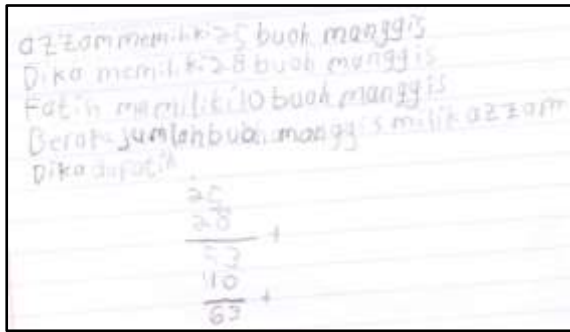 azzam memiliki 25 buah manggis
Dika memiliki 28 buah manggis
Fatih memiliki 10 buah manggis
Berapa jumlah buah manggis milik azzam
Dika dafatih
25
28
+
53
10
+
63